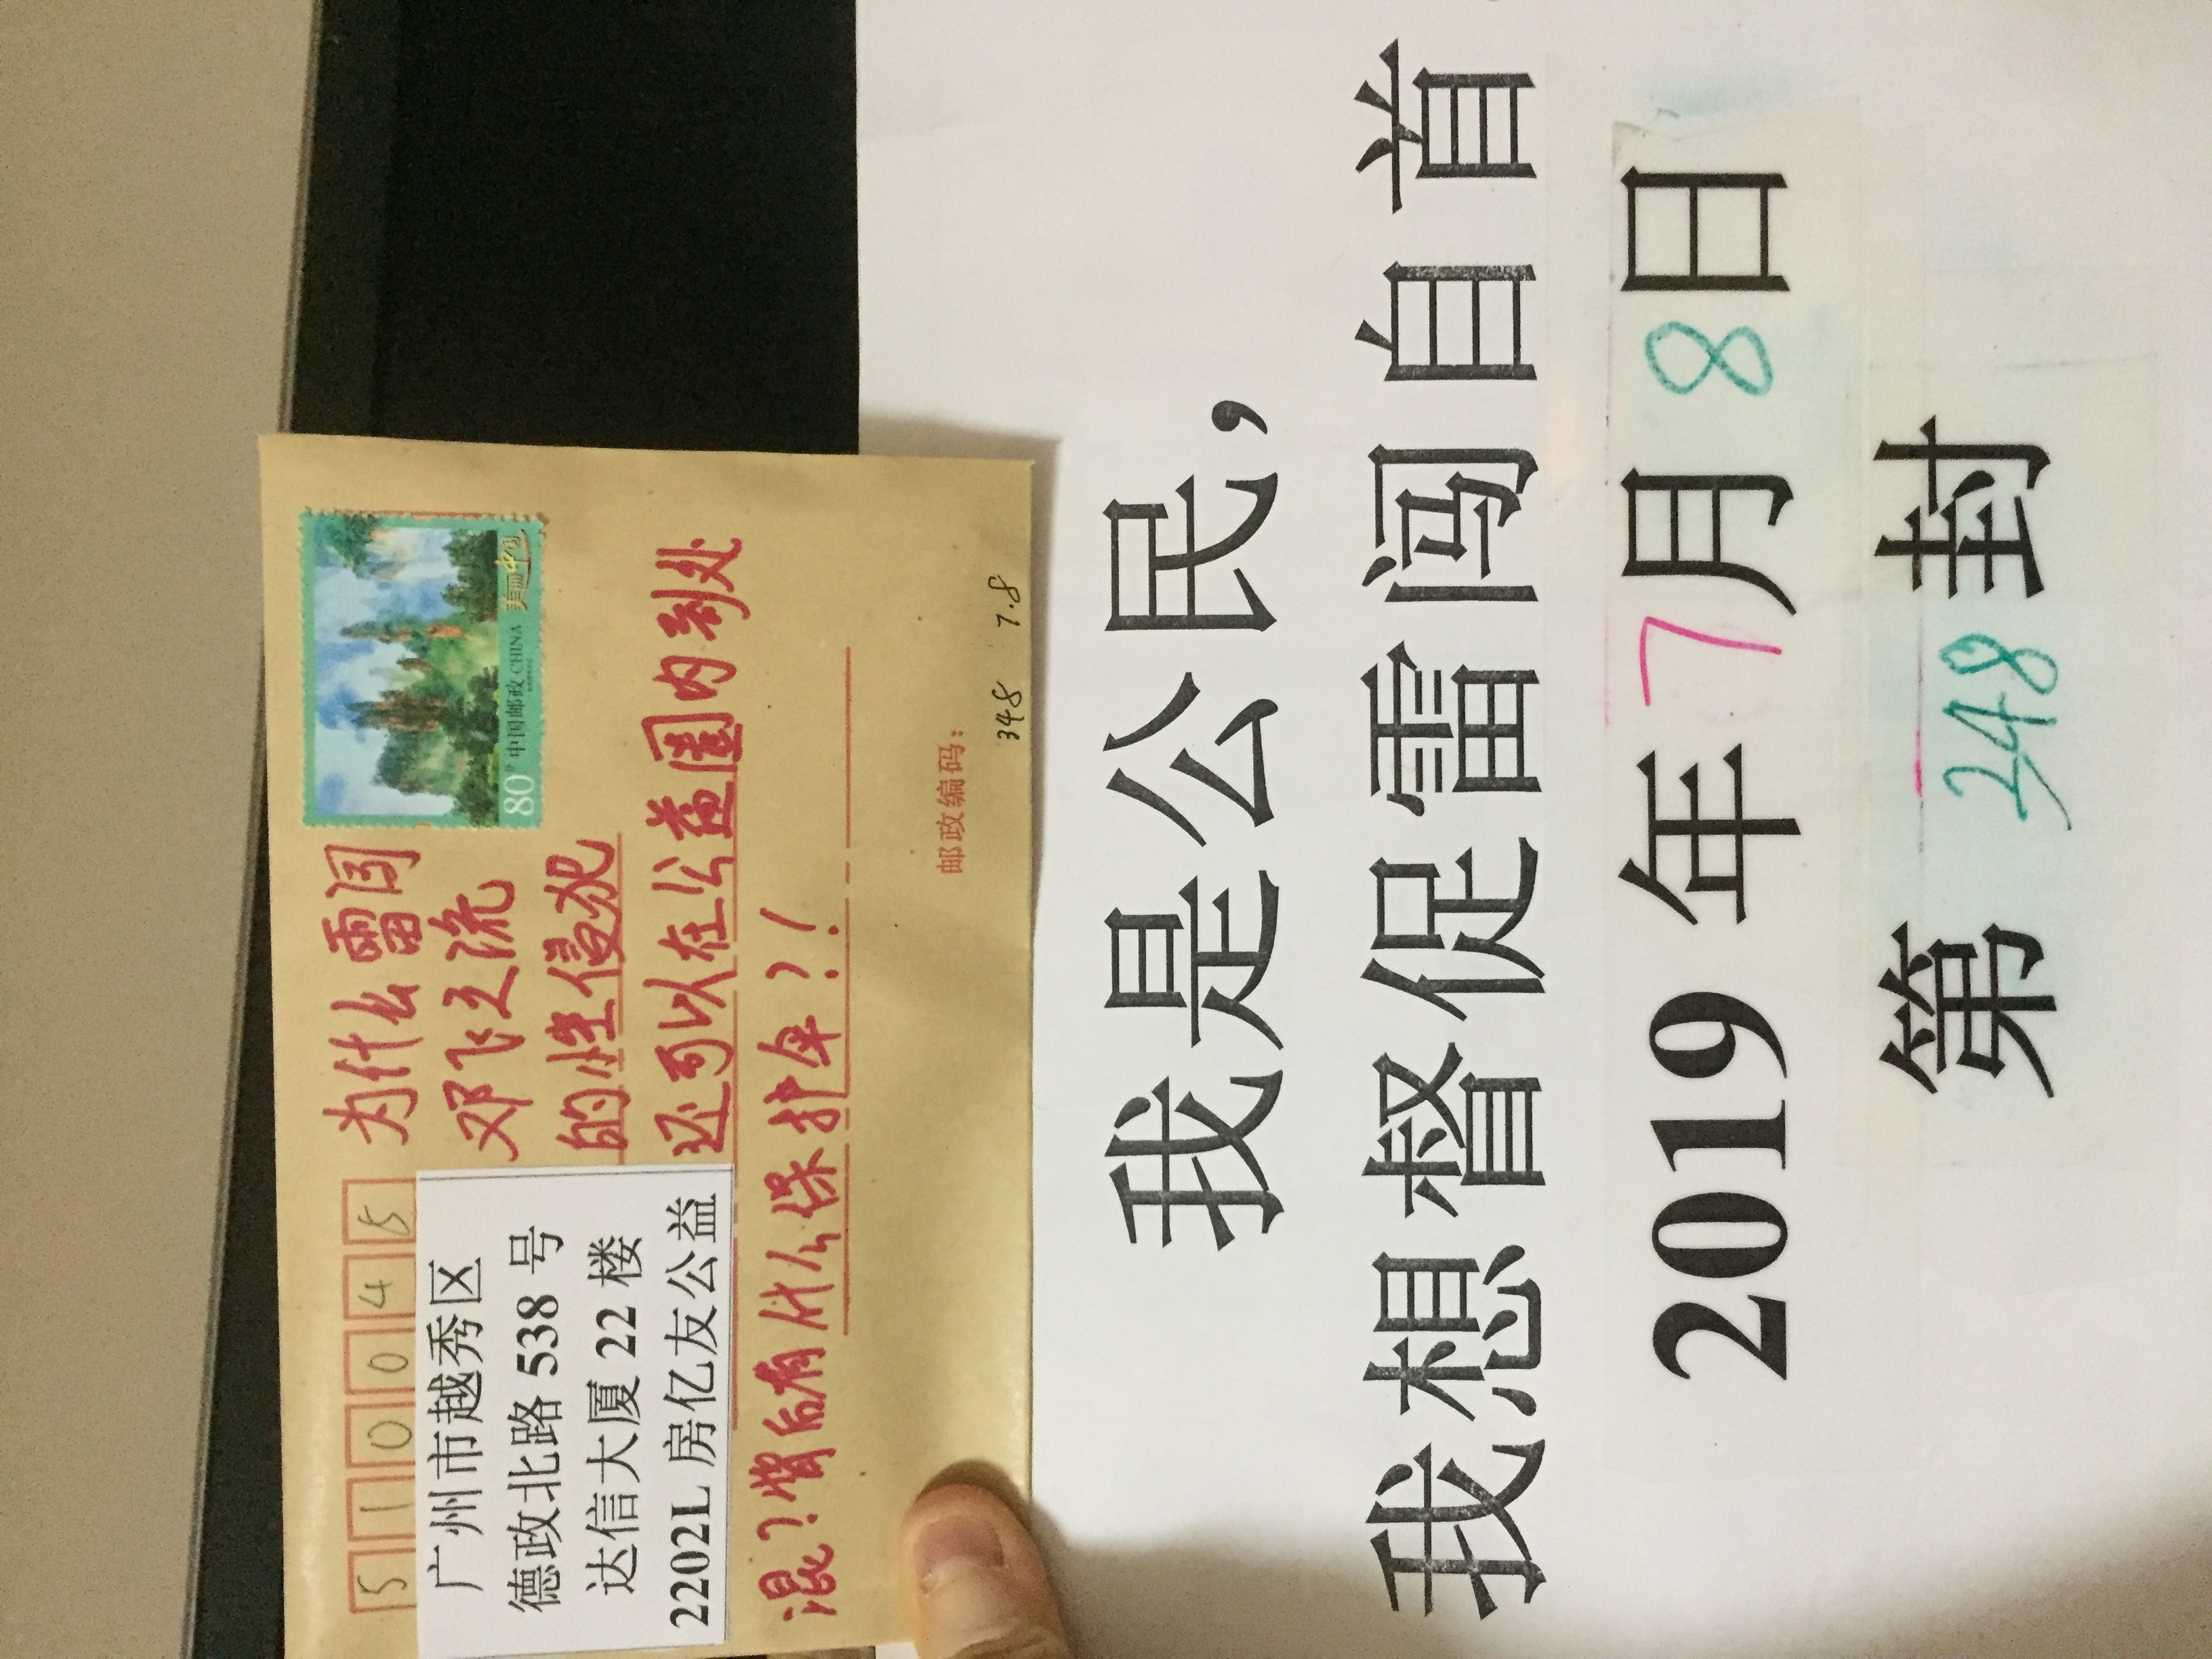 510045
广州市越秀区
德政北路 538 号
达信大厦 22 楼
2202L 房亿友公益
为什么雷闯
邓飞之流
的性侵犯
还可以在公益圈内到处
混？背后有什么保护伞？！
80分 中国邮政 CHINA 美丽中国
邮政编码：
348 7.8
我是公民，
我想督促雷闯自首
2019 年 7月 8日
第 348 封